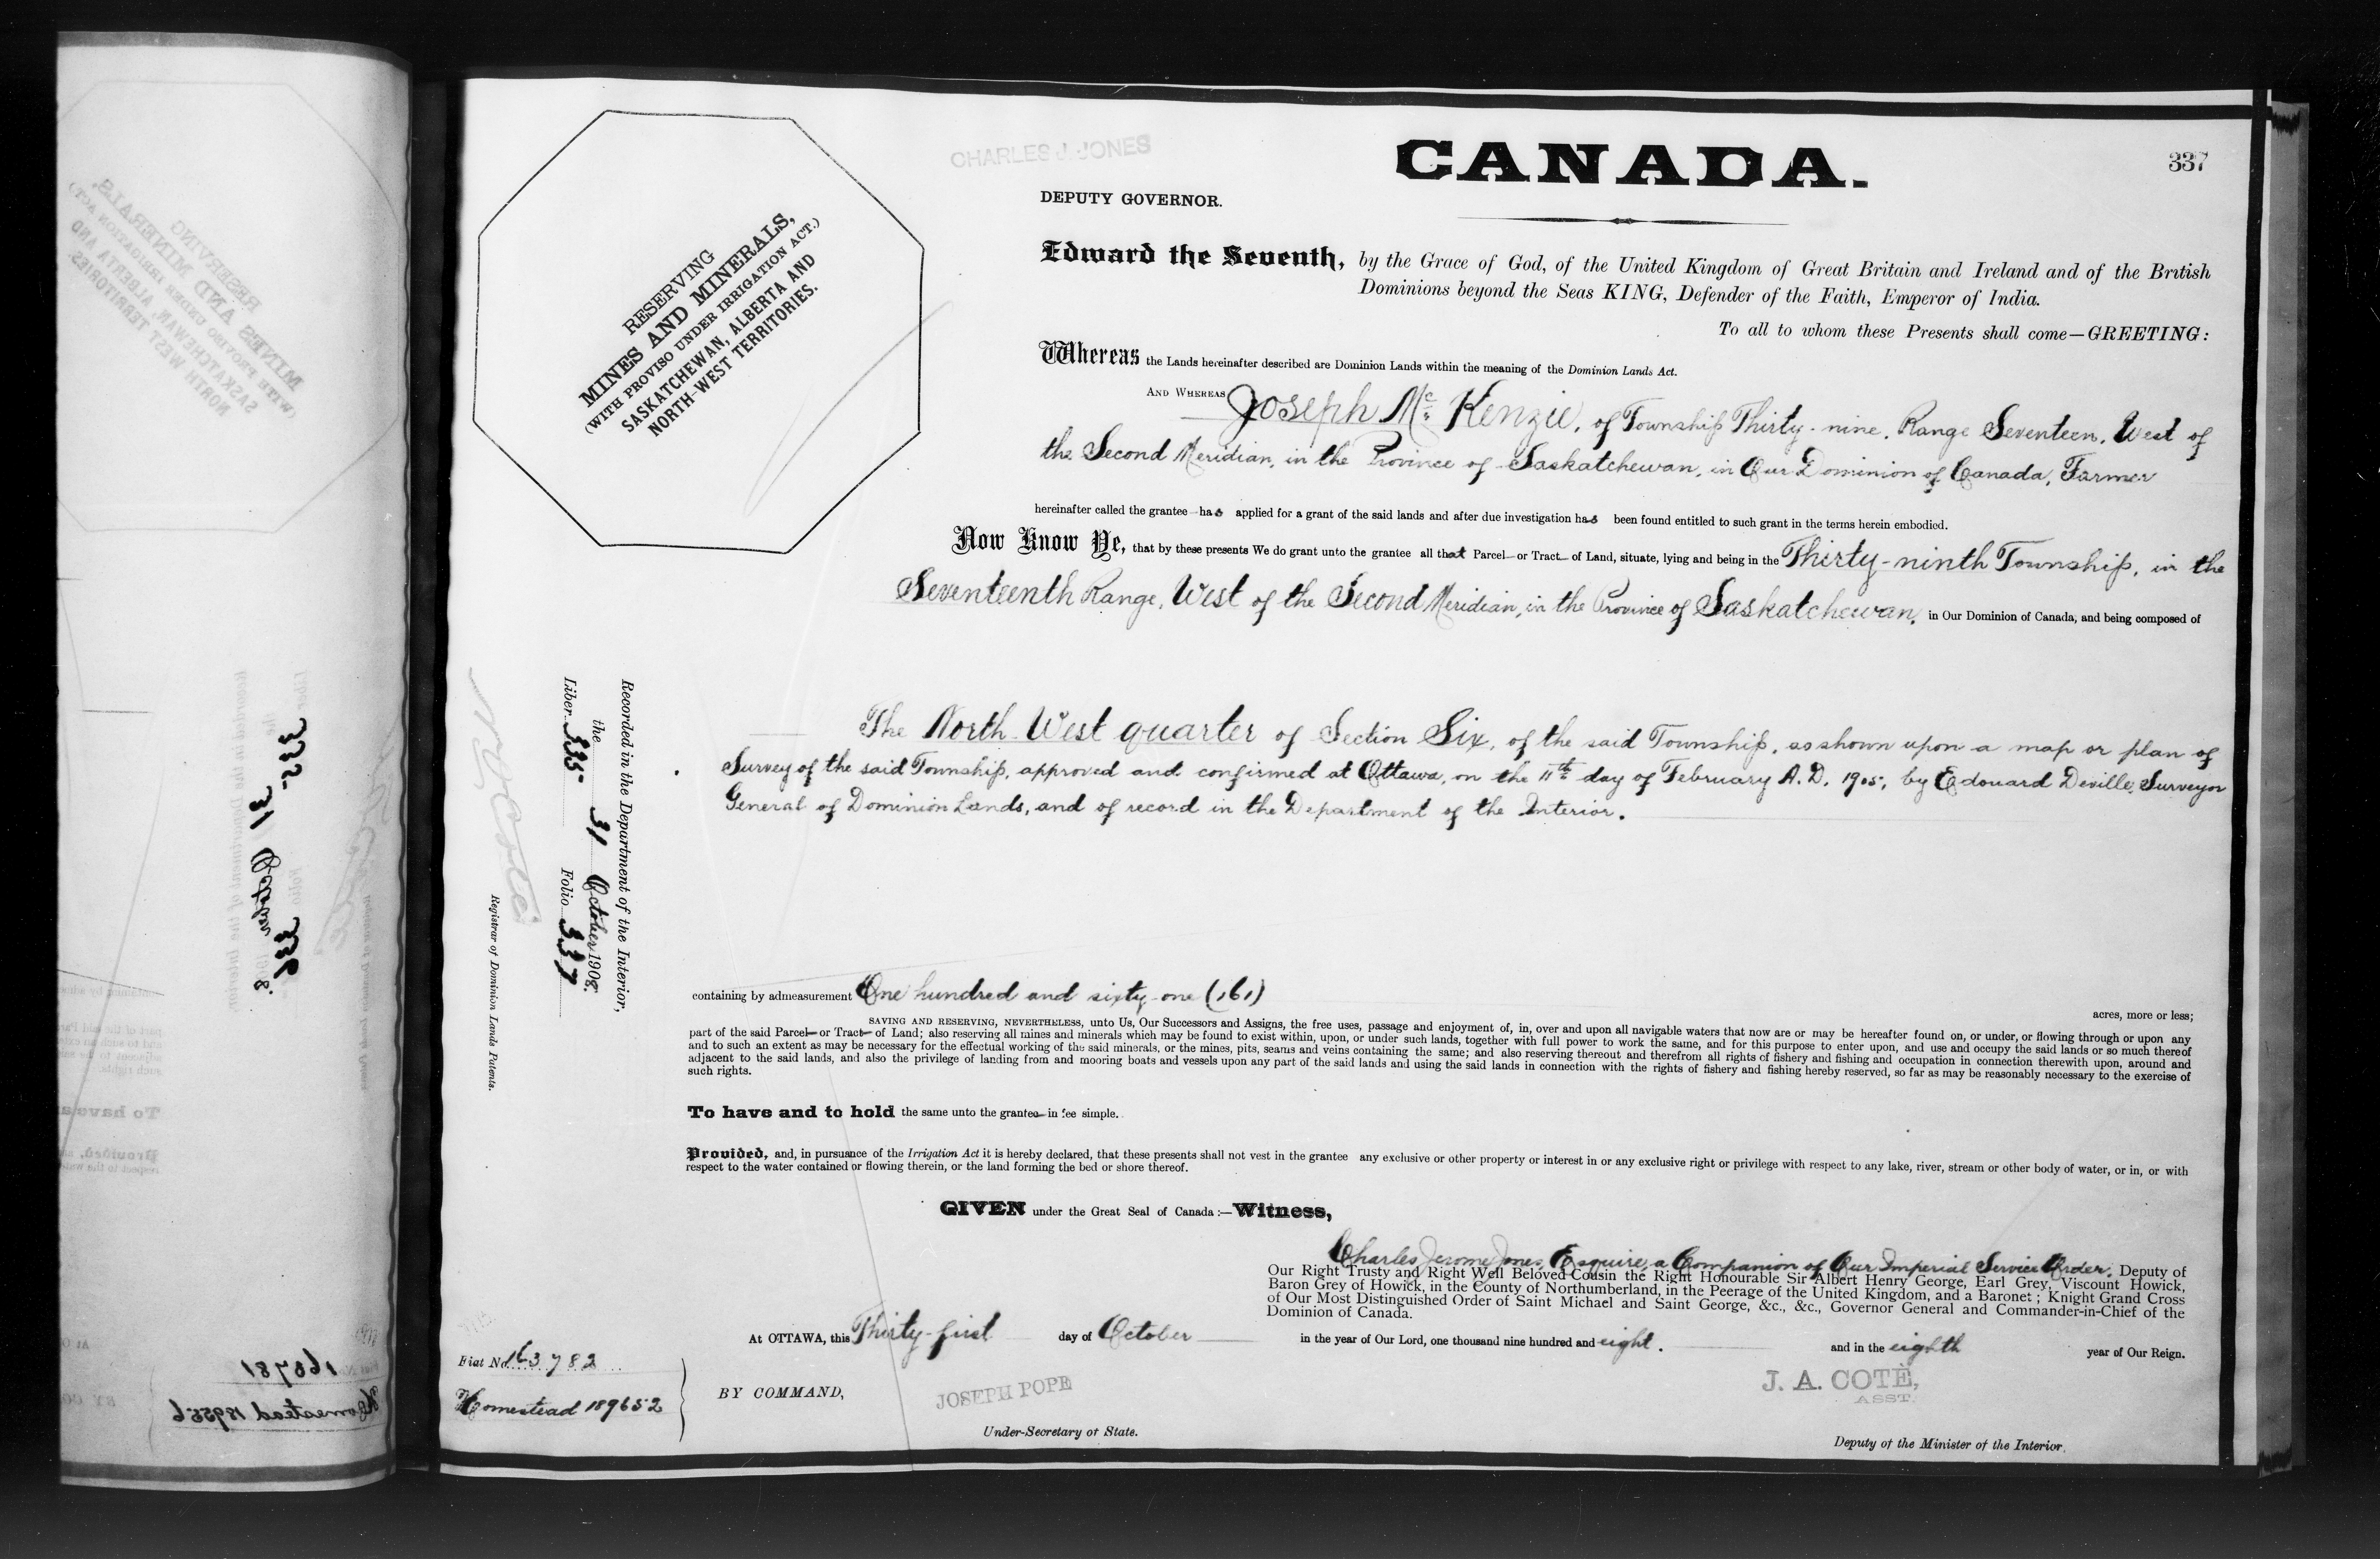 CHARLES J. JONES
CANADA.
337
DEPUTY GOVERNOR.
RESERVING
MINES AND MINERALS,
(WITH PROVISO UNDER IRRIGATION ACT.)
SASKATCHEWAN, ALBERTA AND
NORTH-WEST TERRITORIES.
Edward the Seventh, by the Grace of God, of the United Kingdom of Great Britain and Ireland and of the British
Dominions beyond the Seas KING, Defender of the Faith, Emperor of India.
To all to whom these Presents shall come—GREETING:
Whereas the Lands hereinafter described are Dominion Lands within the meaning of the Dominion Lands Act.
AND WHEREAS Joseph Mc Kenzie, of Township Thirty-nine, Range Seventeen, West of
the Second Meridian, in the Province of Saskatchewan, in Our Dominion of Canada, Farmer
hereinafter called the grantee has applied for a grant of the said lands and after due investigation has been found entitled to such grant in the terms herein embodied.
Now Know Ye, that by these presents We do grant unto the grantee all that Parcel or Tract of Land, situate, lying and being in the Thirty-ninth Township, in the
Seventeenth Range, West of the Second Meridian, in the Province of Saskatchewan, in Our Dominion of Canada, and being composed of
The North West quarter of Section Six, of the said Township, as shown upon a map or plan of
Survey of the said Township, approved and confirmed at Ottawa, on the 11th day of February A.D. 1905, by Edouard Deville, Surveyor
General of Dominion Lands, and of record in the Department of the Interior.
Recorded in the Department of the Interior,
the 31 October 1908.
Liber 335 Folio 337
N O Coté
Registrar of Dominion Lands Patents.
containing by admeasurement One hundred and sixty-one (161)
acres, more or less;
SAVING AND RESERVING, NEVERTHELESS, unto Us, Our Successors and Assigns, the free uses, passage and enjoyment of, in, over and upon all navigable waters that now are or may be hereafter found on, or under, or flowing through or upon any
part of the said Parcel or Tract of Land; also reserving all mines and minerals which may be found to exist within, upon, or under such lands, together with full power to work the same, and for this purpose to enter upon, and use and occupy the said lands or so much thereof
and to such an extent as may be necessary for the effectual working of the said minerals, or the mines, pits, seams and veins containing the same; and also reserving thereout and therefrom all rights of fishery and fishing and occupation in connection therewith upon, around and
adjacent to the said lands, and also the privilege of landing from and mooring boats and vessels upon any part of the said lands and using the said lands in connection with the rights of fishery and fishing hereby reserved, so far as may be reasonably necessary to the exercise of
such rights.
To have and to hold the same unto the grantee in fee simple.
Provided, and, in pursuance of the Irrigation Act it is hereby declared, that these presents shall not vest in the grantee any exclusive or other property or interest in or any exclusive right or privilege with respect to any lake, river, stream or other body of water, or in, or with
respect to the water contained or flowing therein, or the land forming the bed or shore thereof.
GIVEN under the Great Seal of Canada:—Witness,
Charles Jerome Jones, Esquire, a Companion of Our Imperial Service Order, Deputy of
Our Right Trusty and Right Well Beloved Cousin the Right Honourable Sir Albert Henry George, Earl Grey, Viscount Howick,
Baron Grey of Howick, in the County of Northumberland, in the Peerage of the United Kingdom, and a Baronet; Knight Grand Cross
of Our Most Distinguished Order of Saint Michael and Saint George, &c., &c., Governor General and Commander-in-Chief of the
Dominion of Canada.
At OTTAWA, this Thirty-first day of October in the year of Our Lord, one thousand nine hundred and eight. and in the eighth year of Our Reign.
Fiat No. 163782
Homestead 189652
BY COMMAND,
JOSEPH POPE
Under-Secretary of State.
J. A. COTÉ,
ASST.
Deputy of the Minister of the Interior.